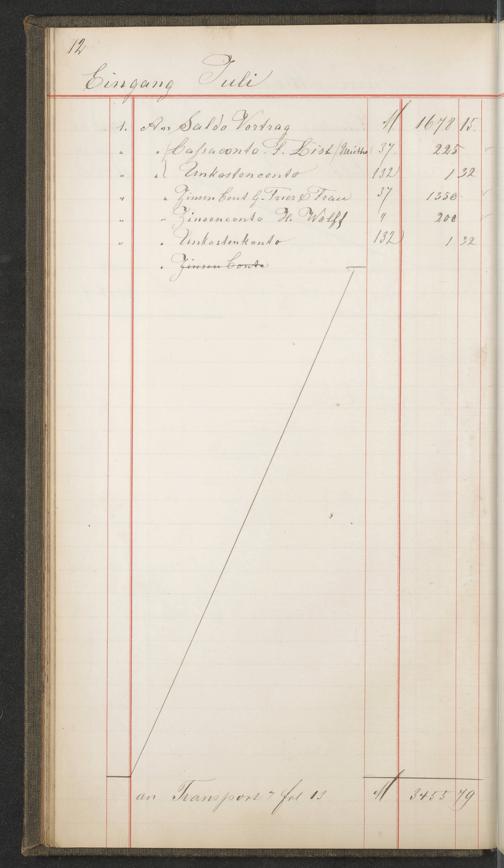 12
Eingang Juli
1. An Saldo Vortrag M 1678 15
" " Cassaconto F. List / Miethe 37 225
" " Unkostenconto 132 1 32
" " Zinsen Cont G. & Frau 37 1350
" " Zinsenconto H. Wolff " 200
" " Unkostenkonto 132 1 32
" Zinsen Conto
an Transport fol 13 M 3455 79